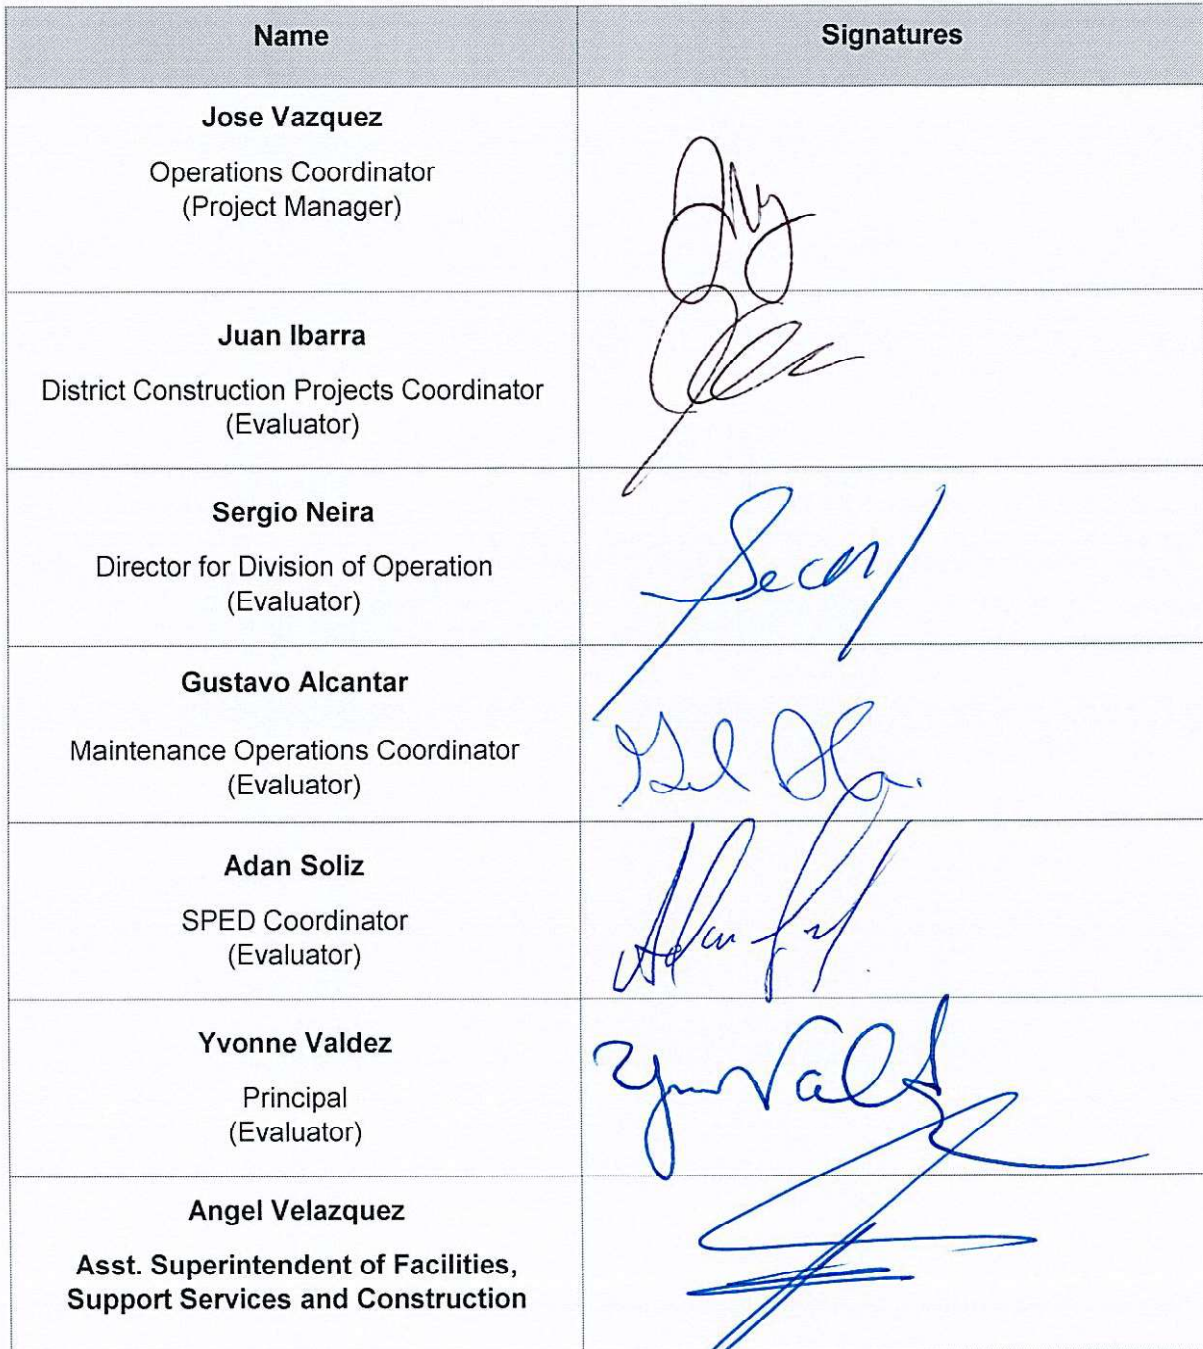 Name Signatures
Jose Vazquez
Operations Coordinator
(Project Manager)
Juan Ibarra
District Construction Projects Coordinator
(Evaluator)
Sergio Neira
Director for Division of Operation
(Evaluator)
Gustavo Alcantar
Maintenance Operations Coordinator
(Evaluator)
Adan Soliz
SPED Coordinator
(Evaluator)
Yvonne Valdez
Principal
(Evaluator)
Angel Velazquez
Asst. Superintendent of Facilities,
Support Services and Construction